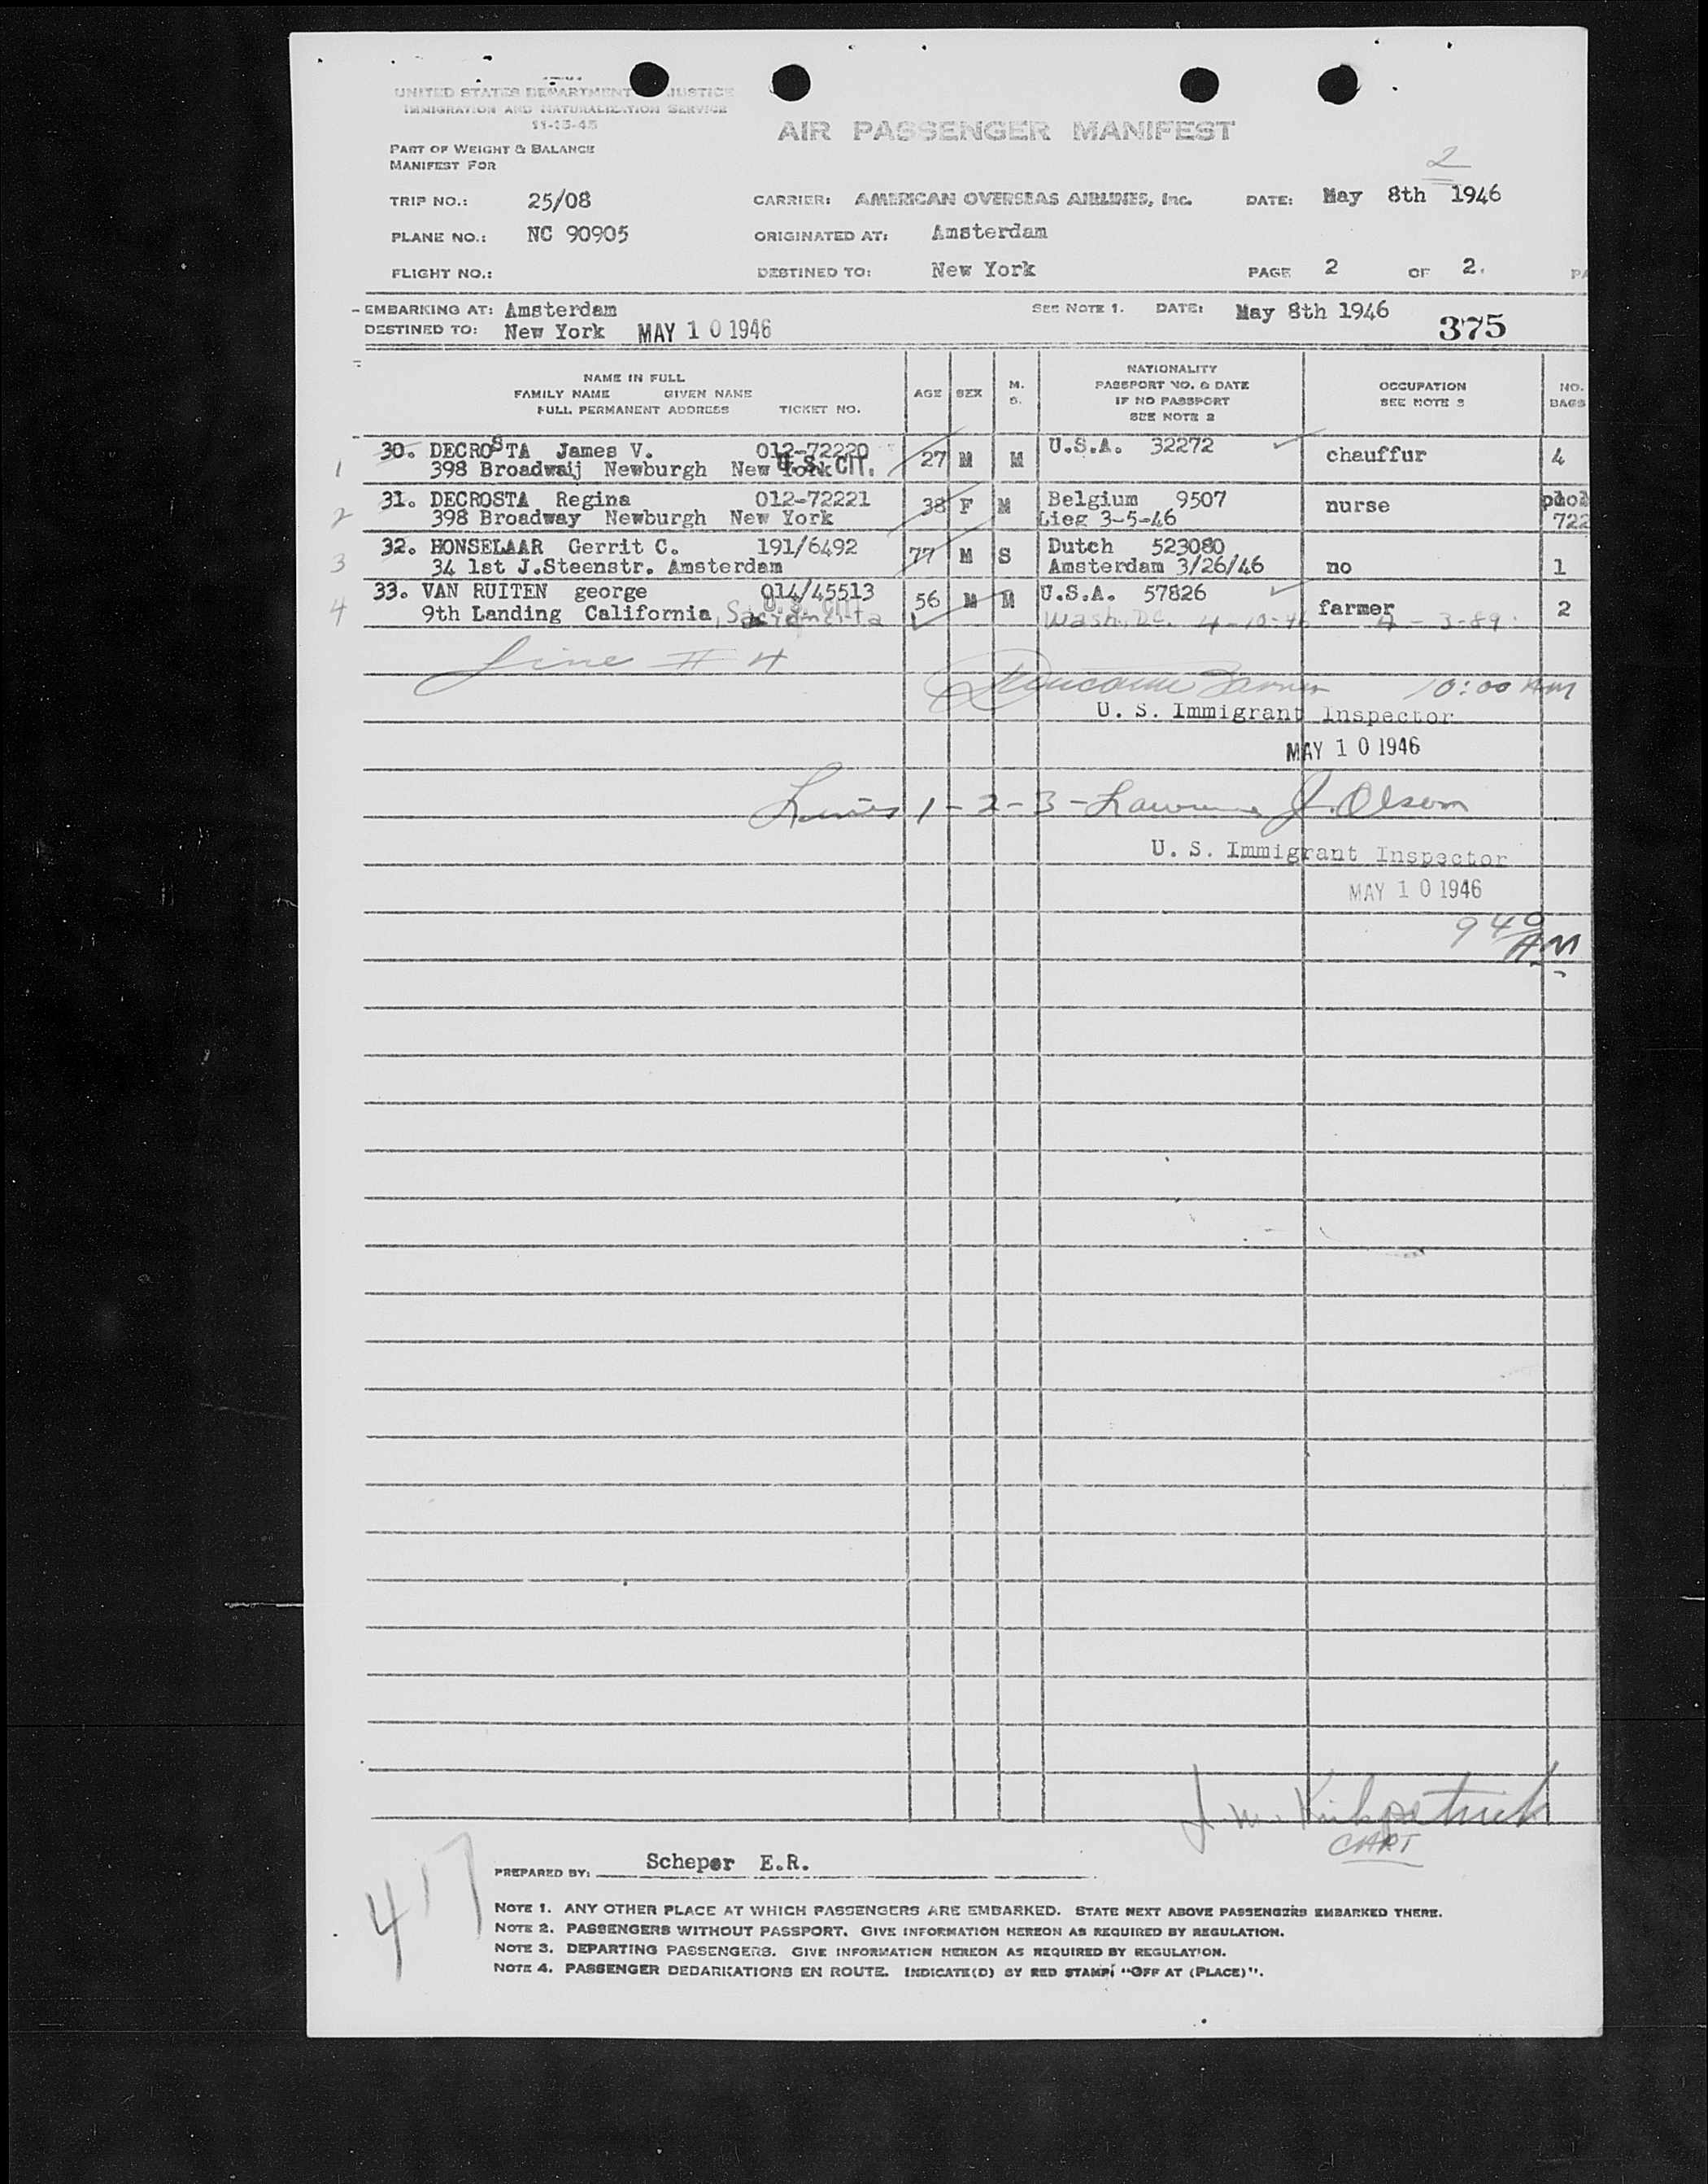 UNITED STATES DEPARTMENT JUSTICE
IMMIGRATION AND NATURALIZATION SERVICE
11-15-45
AIR PASSENGER MANIFEST
PART OF WEIGHT & BALANCE
MANIFEST FOR
2
TRIP NO.: 25/08 CARRIER: AMERICAN OVERSEAS AIRLINES, Inc. DATE: May 8th 1946
PLANE NO.: NC 90905 ORIGINATED AT: Amsterdam
FLIGHT NO.: DESTINED TO: New York PAGE 2 OF 2. PA
EMBARKING AT: Amsterdam SEE NOTE 1. DATE: May 8th 1946
DESTINED TO: New York MAY 10 1946 375
NAME IN FULL
FAMILY NAME GIVEN NAME
FULL PERMANENT ADDRESS TICKET NO.
AGE SEX M. S.
NATIONALITY
PASSPORT NO. & DATE
IF NO PASSPORT
SEE NOTE 2
OCCUPATION
SEE NOTE 3
NO.
BAGS
1 30. DECROSTA James V. 012-72220 27 M M U.S.A. 32272 chauffur 4
398 Broadwaij Newburgh New York U.S. CIT.
2 31. DECROSTA Regina 012-72221 38 F M Belgium 9507 nurse
398 Broadway Newburgh New York Lieg 3-5-46 722
3 32. HONSELAAR Gerrit C. 191/6492 77 M S Dutch 523080
34 1st J.Steenstr. Amsterdam Amsterdam 3/26/46 no 1
4 33. VAN RUITEN george 014/45513 56 M M U.S.A. 57826 farmer 2
9th Landing California, U.S. CIT. Wash. D.C. 4-10-46 - 3-89
Line # 4
10:00 AM
U. S. Immigrant Inspector
MAY 10 1946
Lines 1-2-3- Lawrence J. Olsen
U. S. Immigrant Inspector
MAY 10 1946
9 40 AM
J. W. Kirkpatrick
CAPT
417
PREPARED BY: Scheper E.R.
NOTE 1. ANY OTHER PLACE AT WHICH PASSENGERS ARE EMBARKED. STATE NEXT ABOVE PASSENGERS EMBARKED THERE.
NOTE 2. PASSENGERS WITHOUT PASSPORT. GIVE INFORMATION HEREON AS REQUIRED BY REGULATION.
NOTE 3. DEPARTING PASSENGERS. GIVE INFORMATION HEREON AS REQUIRED BY REGULATION.
NOTE 4. PASSENGER DEBARKATIONS EN ROUTE. INDICATE(D) BY RED STAMP: "OFF AT (PLACE)".